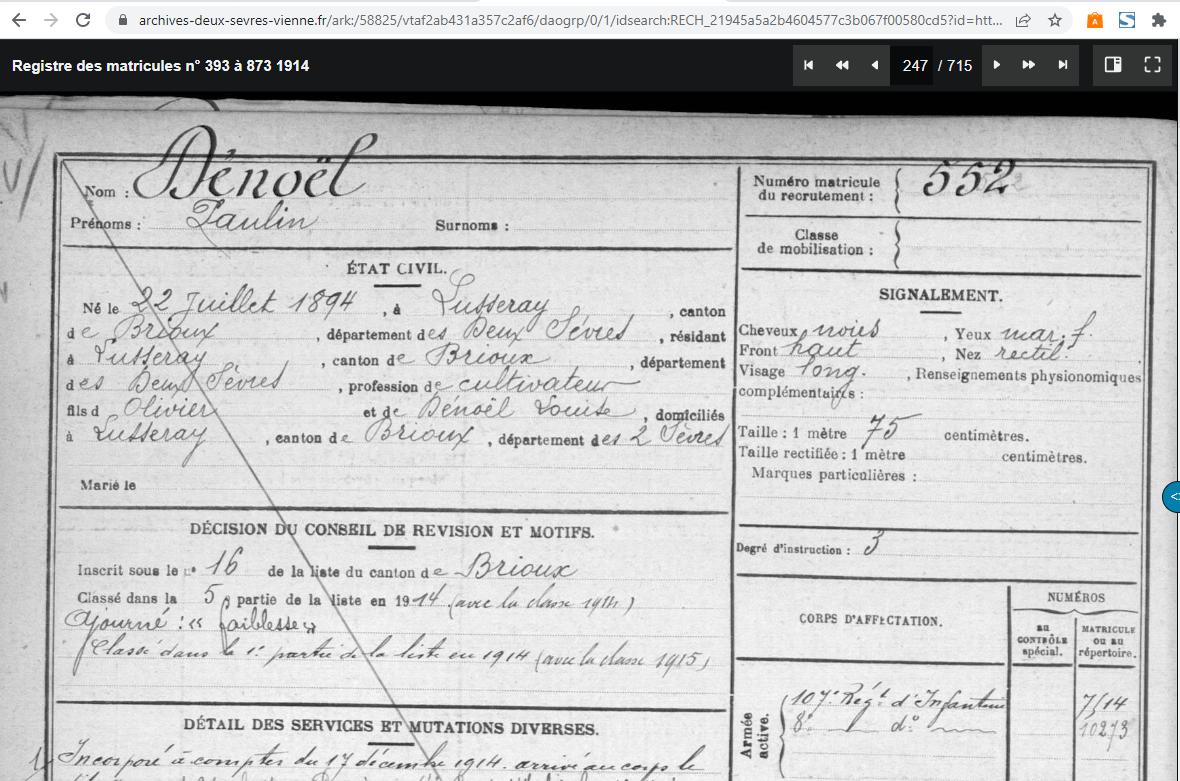 archives-deux-sevres-vienne.fr/ark:/58825/vtaf2ab431a357c2af6/daogrp/0/1/idsearch:RECH_21945a5a2b4604c77c30f67f00580cd5?id=htt...
Registre des matricules n° 393 à 873 1914
247 / 715
Nom : Dénoël
Prénoms : Paulin Surnoms :
ÉTAT CIVIL.
Né le 22 Juillet 1894, à Lusseray, canton
de Brioux, département des Deux Sèvres, résidant
à Lusseray, canton de Brioux, département
des Deux Sèvres, profession de cultivateur
fils d Olivier et de Dénoël Louise, domiciliés
à Lusseray, canton de Brioux, département des 2 Sèvres
Marié le
DÉCISION DU CONSEIL DE REVISION ET MOTIFS.
Inscrit sous le n° 16 de la liste du canton de Brioux
Classé dans la 5e partie de la liste en 1914 (avec la classe 1914)
Ajourné : « faiblesse »
Classé dans la 1e partie de la liste en 1914 (avec la classe 1915)
DÉTAIL DES SERVICES ET MUTATIONS DIVERSES.
Incorporé à compter du 17 décembre 1914. arrivé au corps le
Numéro matricule
du recrutement : 552
Classe
de mobilisation :
SIGNALEMENT.
Cheveux noirs, Yeux mar. f.
Front haut, Nez rectil.
Visage long., Renseignements physionomiques
complémentaires :
Taille : 1 mètre 75 centimètres.
Taille rectifiée : 1 mètre centimètres.
Marques particulières :
Degré d'instruction : 3
CORPS D'AFFECTATION.
NUMÉROS
au
CONTRÔLE
spécial.
MATRICULE
ou au
répertoire.
Armée
active.
107e Régt d'Infanterie 7/14
8e do 10273